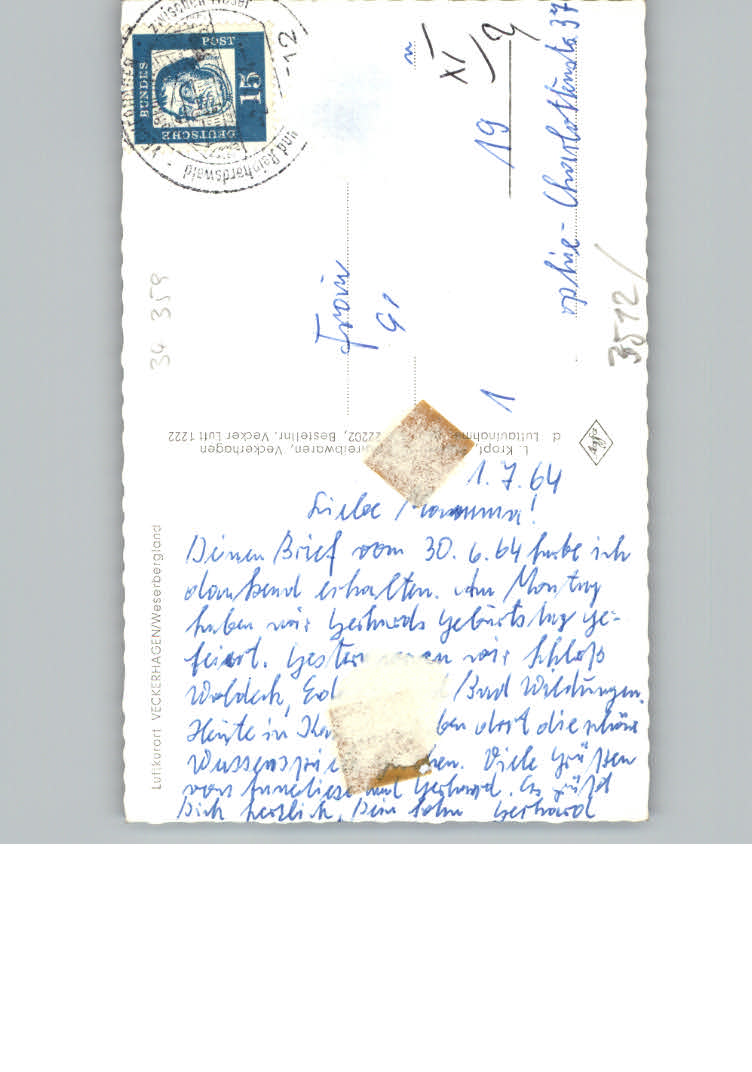 1.7.64
Liebe Mamma!
Deinen Brief vom 30.6.64 habe ich
dankend erhalten. Am Montag
haben wir Gerhards Geburtstag ge-
feiert. Gestern waren wir Schloß
Waldeck, Ed /Bad Wildungen.
Heute in Ka ben dort die schöne
Wasserspie hen. Viele Grüßen
von Anneliese und Gerhard. Es grüßt
Dich herzlich, Dein Sohn Gerhard
Luftkurort VECKERHAGEN/Weserbergland
L. Kropf, reibwaren, Veckerhagen
d. Luftaufnahme 22202, Bestellnr. Vecker Luft 1222
Agfa
Frau
1
19
ophie-Charlottenstr 37
XI/2
3512/
34 359
DEUTSCHE
BUNDES
POST
15
und Reinhardswald
-12